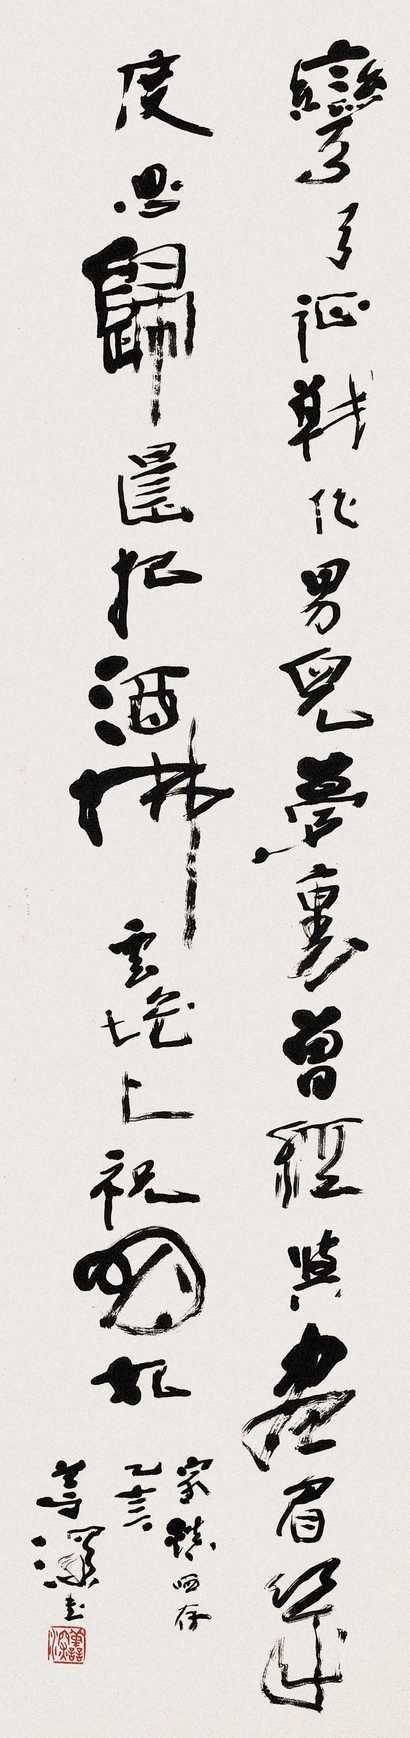 彎弓征戰作男兒夢裏曾經與畫眉幾
度思歸還把酒拂雲堆上祝明妃
家 哂存
乙亥
書